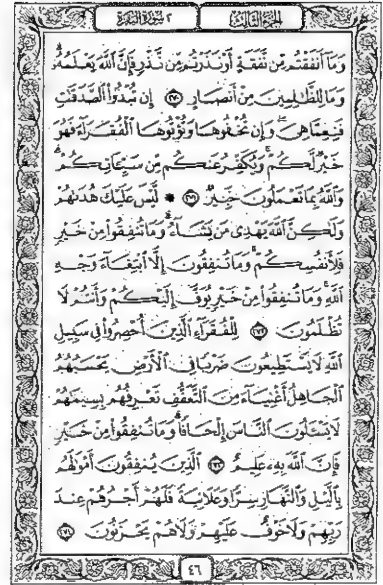 الجزء الثالث
٢ سورة البقرة
وَمَآ أَنفَقْتُم مِّن نَّفَقَةٍ أَوْ نَذَرْتُم مِّن نَّذْرٍ فَإِنَّ ٱللَّهَ يَعْلَمُهُۥ
وَمَا لِلظَّـٰلِمِينَ مِنْ أَنصَارٍ ٢٧٠ إِن تُبْدُوا۟ ٱلصَّدَقَـٰتِ
فَنِعِمَّا هِىَ وَإِن تُخْفُوهَا وَتُؤْتُوهَا ٱلْفُقَرَآءَ فَهُوَ
خَيْرٌ لَّكُمْ وَيُكَفِّرُ عَنكُم مِّن سَيِّـَٔاتِكُمْ
وَٱللَّهُ بِمَا تَعْمَلُونَ خَبِيرٌ ٢٧١ ۞ لَّيْسَ عَلَيْكَ هُدَىٰهُمْ
وَلَـٰكِنَّ ٱللَّهَ يَهْدِى مَن يَشَآءُ وَمَا تُنفِقُوا۟ مِنْ خَيْرٍ
فَلِأَنفُسِكُمْ وَمَا تُنفِقُونَ إِلَّا ٱبْتِغَآءَ وَجْهِ
ٱللَّهِ وَمَا تُنفِقُوا۟ مِنْ خَيْرٍ يُوَفَّ إِلَيْكُمْ وَأَنتُمْ لَا
تُظْلَمُونَ ٢٧٢ لِلْفُقَرَآءِ ٱلَّذِينَ أُحْصِرُوا۟ فِى سَبِيلِ
ٱللَّهِ لَا يَسْتَطِيعُونَ ضَرْبًا فِى ٱلْأَرْضِ يَحْسَبُهُمُ
ٱلْجَاهِلُ أَغْنِيَآءَ مِنَ ٱلتَّعَفُّفِ تَعْرِفُهُم بِسِيمَـٰهُمْ
لَا يَسْـَٔلُونَ ٱلنَّاسَ إِلْحَافًا وَمَا تُنفِقُوا۟ مِنْ خَيْرٍ
فَإِنَّ ٱللَّهَ بِهِۦ عَلِيمٌ ٢٧٣ ٱلَّذِينَ يُنفِقُونَ أَمْوَٰلَهُم
بِٱلَّيْلِ وَٱلنَّهَارِ سِرًّا وَعَلَانِيَةً فَلَهُمْ أَجْرُهُمْ عِندَ
رَبِّهِمْ وَلَا خَوْفٌ عَلَيْهِمْ وَلَا هُمْ يَحْزَنُونَ ٢٧٤
٤٦